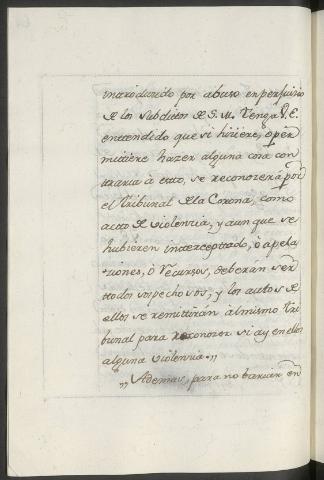 introducido por abuso en perjuicio
de los subditos de S. M. Tenga V. E.
entendido que si hiziere, ò per
mitiere hazer alguna cosa con
traria à esto, se reconozerà por
el Tribunal de la Corona, como
acto de violencia, y aunque se
hubieren interceptado, ò apela
ziones, ò recursos, deberán ser
todos sospechosos, y los autos de
ellos se remittirán al mismo Tri
bunal para reconozer si ay en ellos
alguna violencia.,,
,, Ademas, para no bariar en